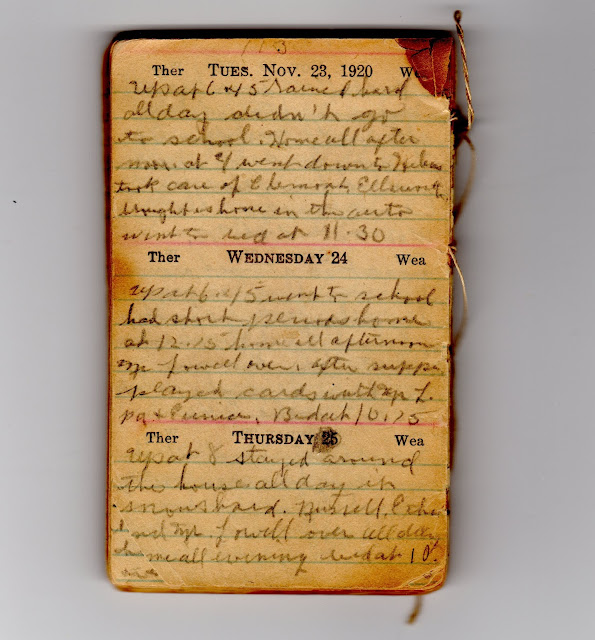 113
Ther TUES. NOV. 23, 1920
up at 6 45 Rained hard
all day didn't go
to school. Home all after
noon. at 7 went down to Helens
took care of Ellsworth
brought us home in the auto
went to bed at 11.30
Ther WEDNESDAY 24 Wea
up at 6.45 went to school
had short periods home
at 12.15 home all afternoon
Mr Jowell over. after supper
played cards with Mr J.
pa & Eunice. Bed at 10.15
Ther THURSDAY 25 Wea
up at 8 stayed around
the house all day it
snows hard. Russell,
and Mr Jowell over all day
home all evening bed at 10.